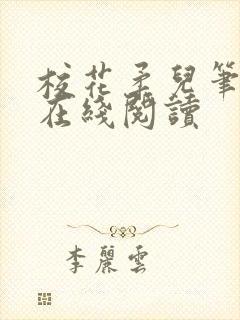 校花柔兒筆
在綫閱讀
李麗雲